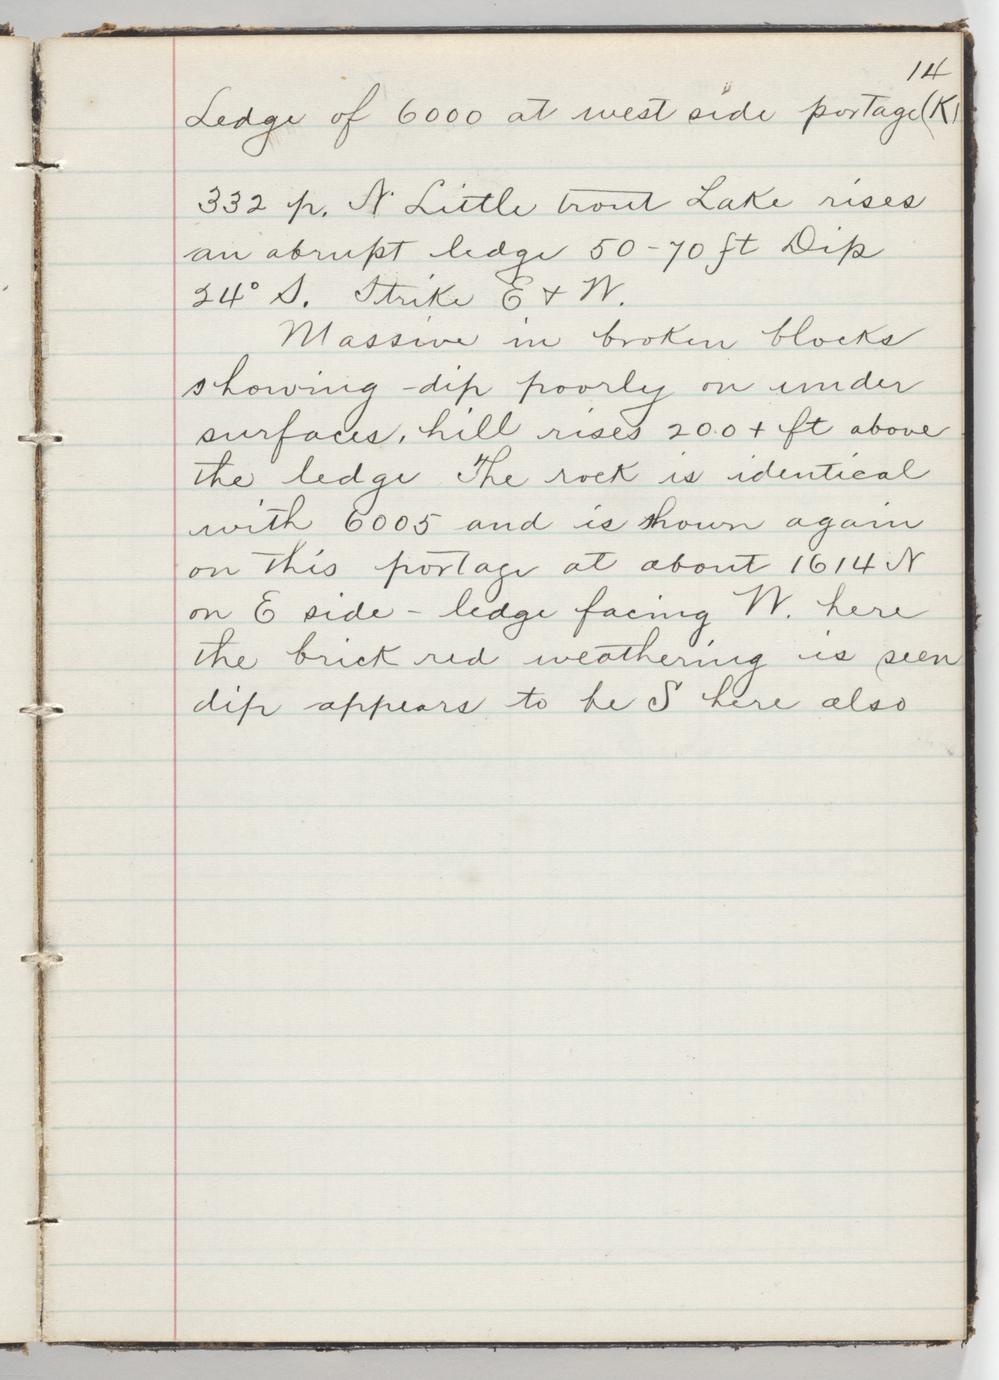 14
Ledge of 6000 at west side portage (K)
332 p. N Little trout Lake rises
an abrupt ledge 50-70 ft Dip
24° S. Strike E & W.
Massive in broken blocks
showing dip poorly on under
surfaces, hill rises 200+ ft above
the ledge The rock is identical
with 6005 and is shown again
on this portage at about 1614 N
on E side - ledge facing W. here
the brick red weathering is seen
dip appears to be S here also